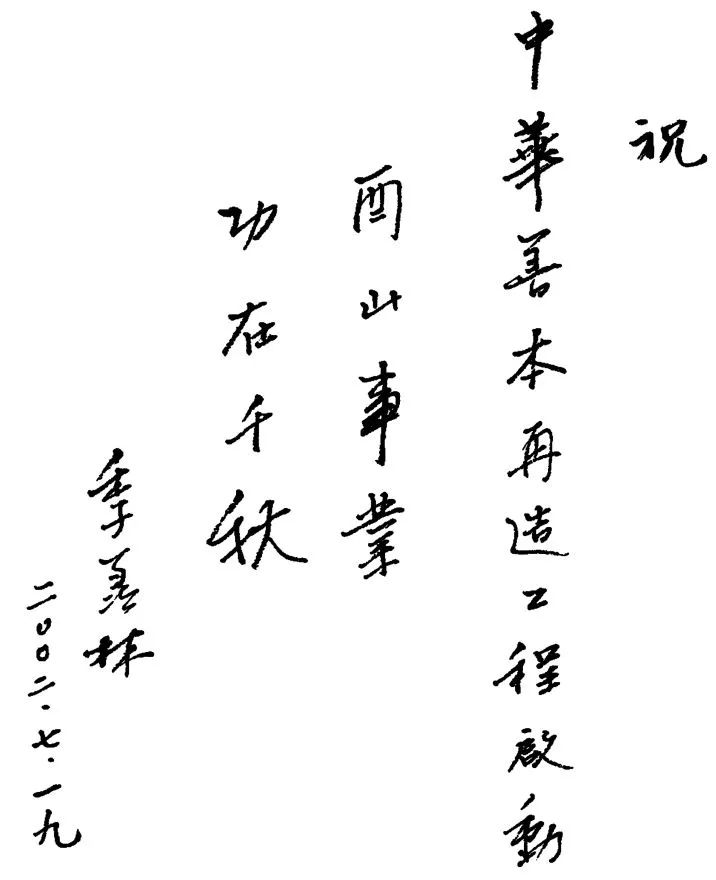 祝
中華善本再造工程啟動
酉山事業
功在千秋
季羨林
二〇〇二.七.一九